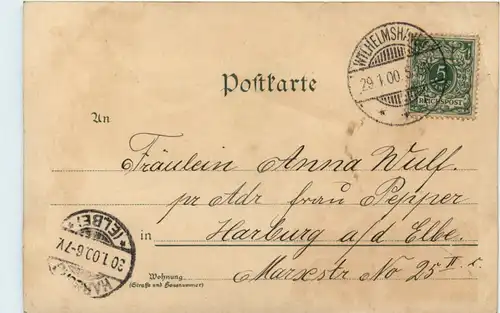 WILHELMSHAVEN
29.1.00.
5
REICHSPOST
Postkarte
An
Fräulein Anna Wulf.
pr Adr frau Pepper
in Harburg a/d Elbe.
Marxstr No 25 II r.
Wohnung.
(Straße und Hausnummer)
HARBURG
(ELBE)
30.1.00.6-7V